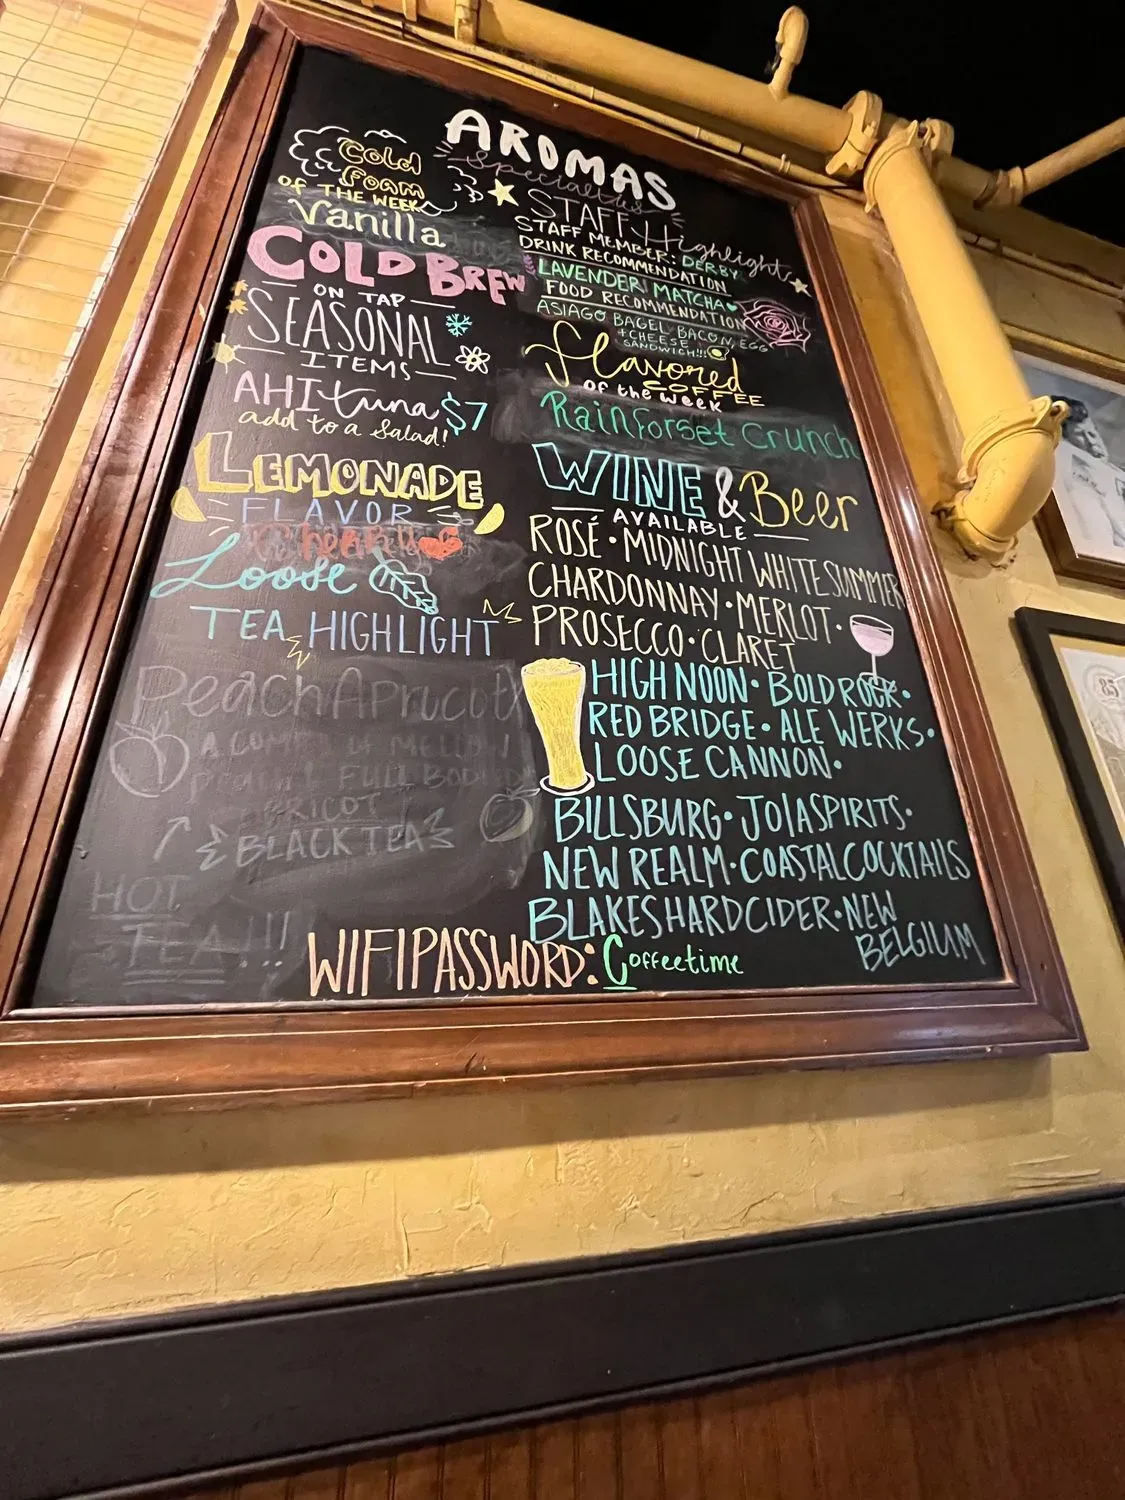 AROMAS
Specialties
Cold
FOAM
OF THE WEEK
Vanilla
COLD BREW
ON TAP
SEASONAL
ITEMS
AHI tuna $7
add to a salad!
LEMONADE
FLAVOR
Cherry
Loose
TEA HIGHLIGHT
Peach Apricot
FULL BODIED
BLACK TEA
HOT
TEA!!!
STAFF Highlight
STAFF MEMBER: DERBY
DRINK RECOMMENDATION
LAVENDER MATCHA
FOOD RECOMMENDATION
ASIAGO BAGEL, BACON, EGG
+ CHEESE
SANDWICH!!!
Flavored
COFFEE
of the week
Rainforset Crunch
WINE & Beer
AVAILABLE
ROSÉ • MIDNIGHT WHITE SUMMER
CHARDONNAY • MERLOT •
PROSECCO • CLARET
HIGH NOON • BOLD ROCK •
RED BRIDGE • ALE WERKS •
LOOSE CANNON •
BILLSBURG • JOIA SPIRITS •
NEW REALM • COASTAL COCKTAILS
BLAKES HARD CIDER • NEW
BELGIUM
WIFI PASSWORD: Coffeetime